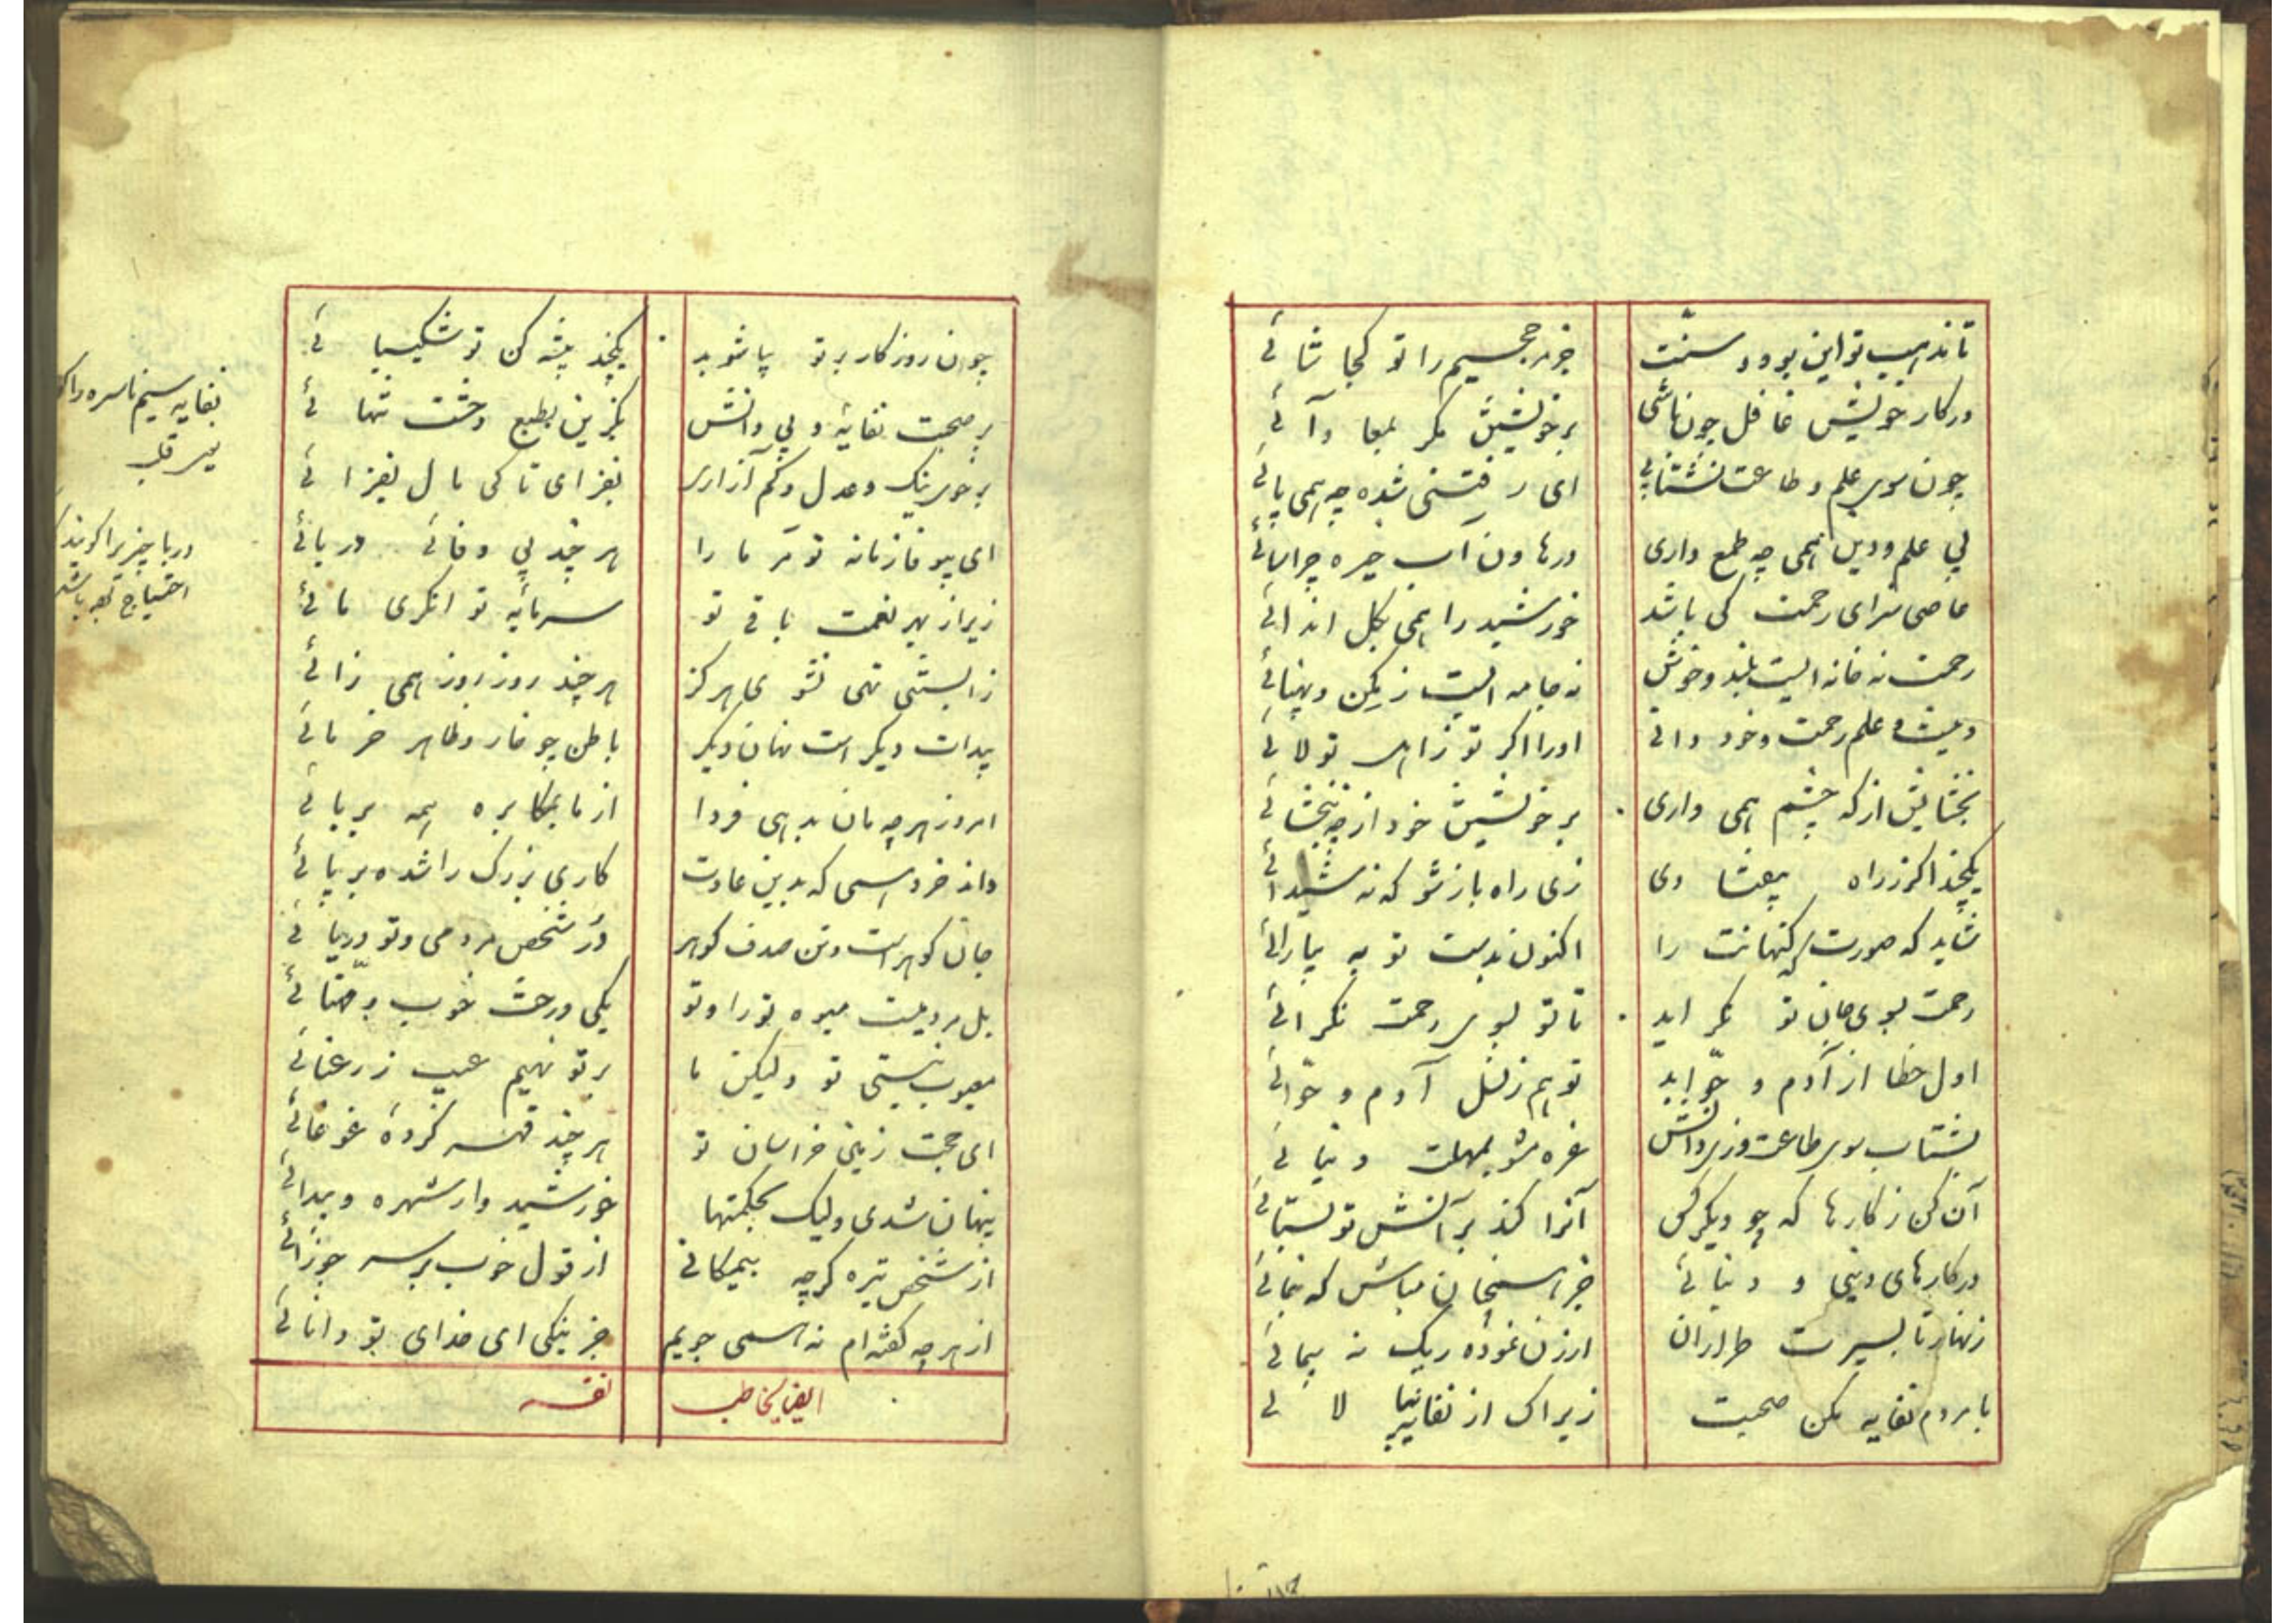 تا مذهب تو این بود و سنت
جز مر جحیم را تو کجا شائی
در کار خویش غافل چون باشی
بر خویشتن مگر بمعادائی
چون سوی علم و طاعت نشتابی
ای رفتنی شده چه همی پائی
بی علم و دین همی چه طمع داری
در هاون آب خیره چرا سائی
عاصی سزای رحمت کی باشد
خورشید را همی بگل اندائی
رحمت نه خانه ایست بلند و خوش
نه جامه ایست رنگین و پهنائی
علم رحمت و خود دانی
او را اگر تو ز اهل تولائی
بخشایش از که چشم همی داری
بر خویشتن خود از چه نبخشائی
یکچند اگر ز راه بیفتادی
زی راه باز شو که نه شیدائی
شاید که صورت گنهانت را
اکنون بدست توبه بیارائی
رحمت بسوی جان تو نگراید
تا تو بسوی رحمت نگرائی
اول خطا از آدم و حوا بد
تو هم ز نسل آدم و حوائی
بشتاب سوی طاعت وزی دانش
غره مشو بمهلت دنیائی
آن کن ز کارها که چو دیگر کس
آنرا کند بر آنش تو بستائی
در کارهای دینی و دنیائی
جز همچنان مباش که بنمائی
زنهار تا بسیرت طراران
ارزن نموده ریگ نه پیمائی
با مردم نفایه مکن صحبت
زیراک از نفایه بیالائی
چون روزگار بر تو بیاشوبد
یکچند پیشه کن تو شکیبائی
بر صحبت نفایه و بی دانش
بگزین بطبع وحشت تنهائی
بر خوی نیک و عدل و کم آزاری
بفزای تا کمال بفزائی
ای بیوفا زمانه تو مر ما را
هر چند بی وفائی دربائی
زیرا ز بهر نعمت باقی تو
سرمایه توانگری مائی
ز ابستنی تهی نشوی هرگز
هر چند روز روز همی زائی
پیدات دیگر است نهان دیگر
باطن چو خار و ظاهر خرمائی
امروز هر چه مان بدهی فردا
از ما بمکابره همه بربائی
داند خرد همی که بدین عادت
کاری بزرگ را شده برپائی
جان گوهر است و تن صدف گوهر
در شخص مردمی و تو دریائی
بل مردمیست میوه تو را و تو
یکی درخت خوب و مهنائی
معیوب نیستی تو و لیکن ما
بر تو نهیم عیب ز رعنائی
ای حجت زمین خراسان تو
هر چند قهر کرده غوغائی
پنهان شدی ولیک بحکمتها
خورشید وار شهره و پیدائی
از شخص تیره گرچه بیمگانی
از قول خوب بر سر جوزائی
از هر چه گفته ام نه همی جویم
جز نیکی ای خدای تو دانائی
ایضا یخاطب
نفسه
نفایه سیم ناسره را
دربا چیزی را گویند
احتیاج باشد